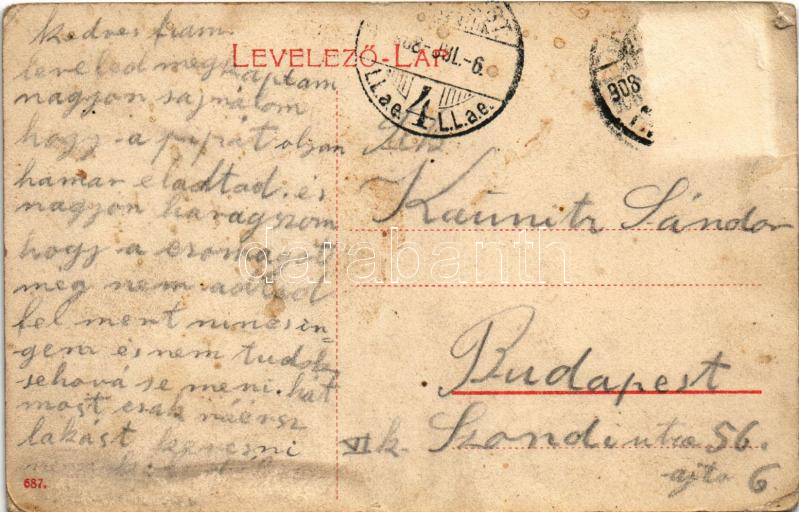 LEVELEZŐ-LAP
kedves fiam
leveled megkaptam
nagyon sajnálom
hogy a pipát oljan
hamar eladtad. és
nagyon haragszom
hogy a csomagot
meg nem adtad
fel mert nincs in-
gem és nem tudok
sehová se meni. hát
most csak ráérsz
lakást keresni
908 JUL.-6.
4
L.L.a.e. L.L.a.e.
908
Kaunitz Sándor
Budapest
VI k. Szondi utca 56.
ajto 6
687.
darabanth